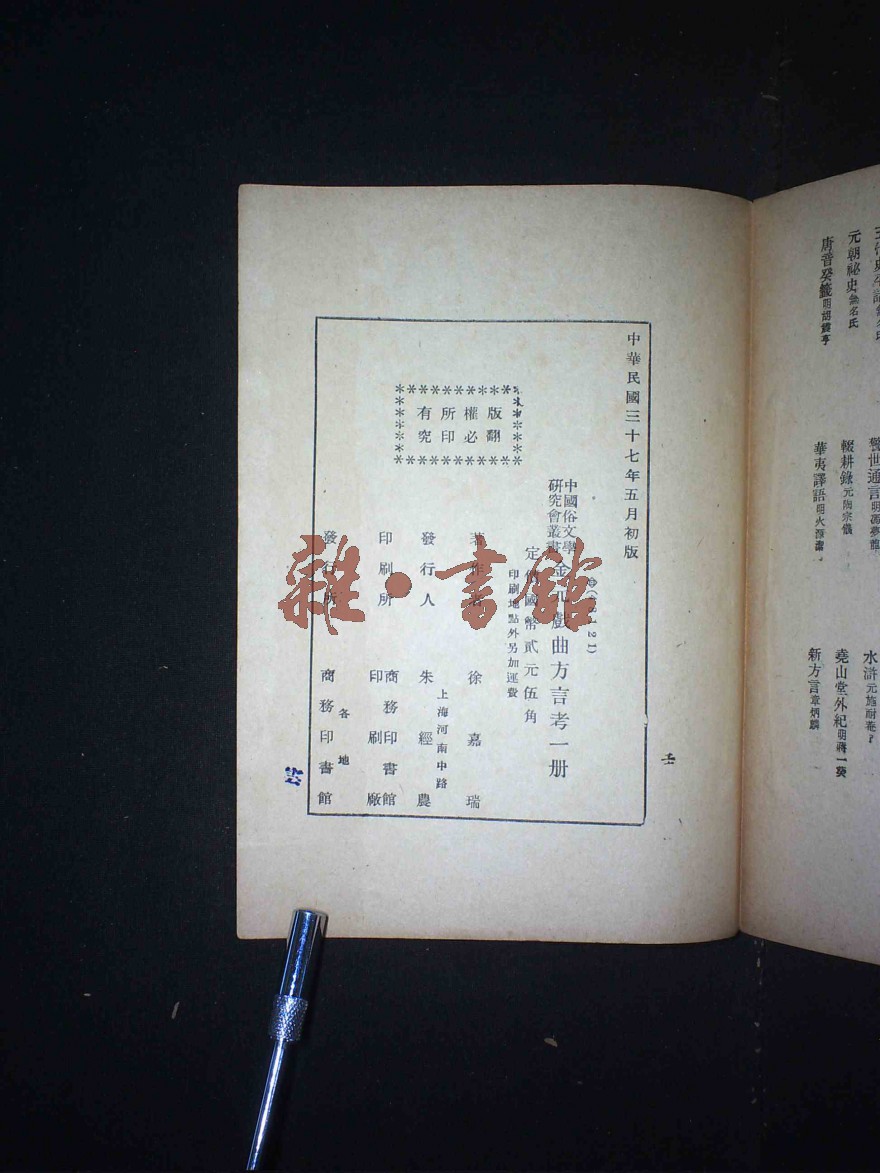 元朝祕史無名氏
唐音癸籤明胡震亨
警世通言明馮夢龍
輟耕錄元陶宗儀
華夷譯語明火源潔
水滸元施耐菴
堯山堂外紀明蔣一葵
新方言章炳麟
中華民國三十七年五月初版
版權所有
翻印必究
中國俗文學研究會叢書
金元戲曲方言考一册
定價國幣貳元伍角
印刷地點外另加運費
著作者 徐嘉瑞
發行人 朱經農
上海河南中路
印刷所 商務印書館印刷廠
發行所 商務印書館
各地
雜·書館